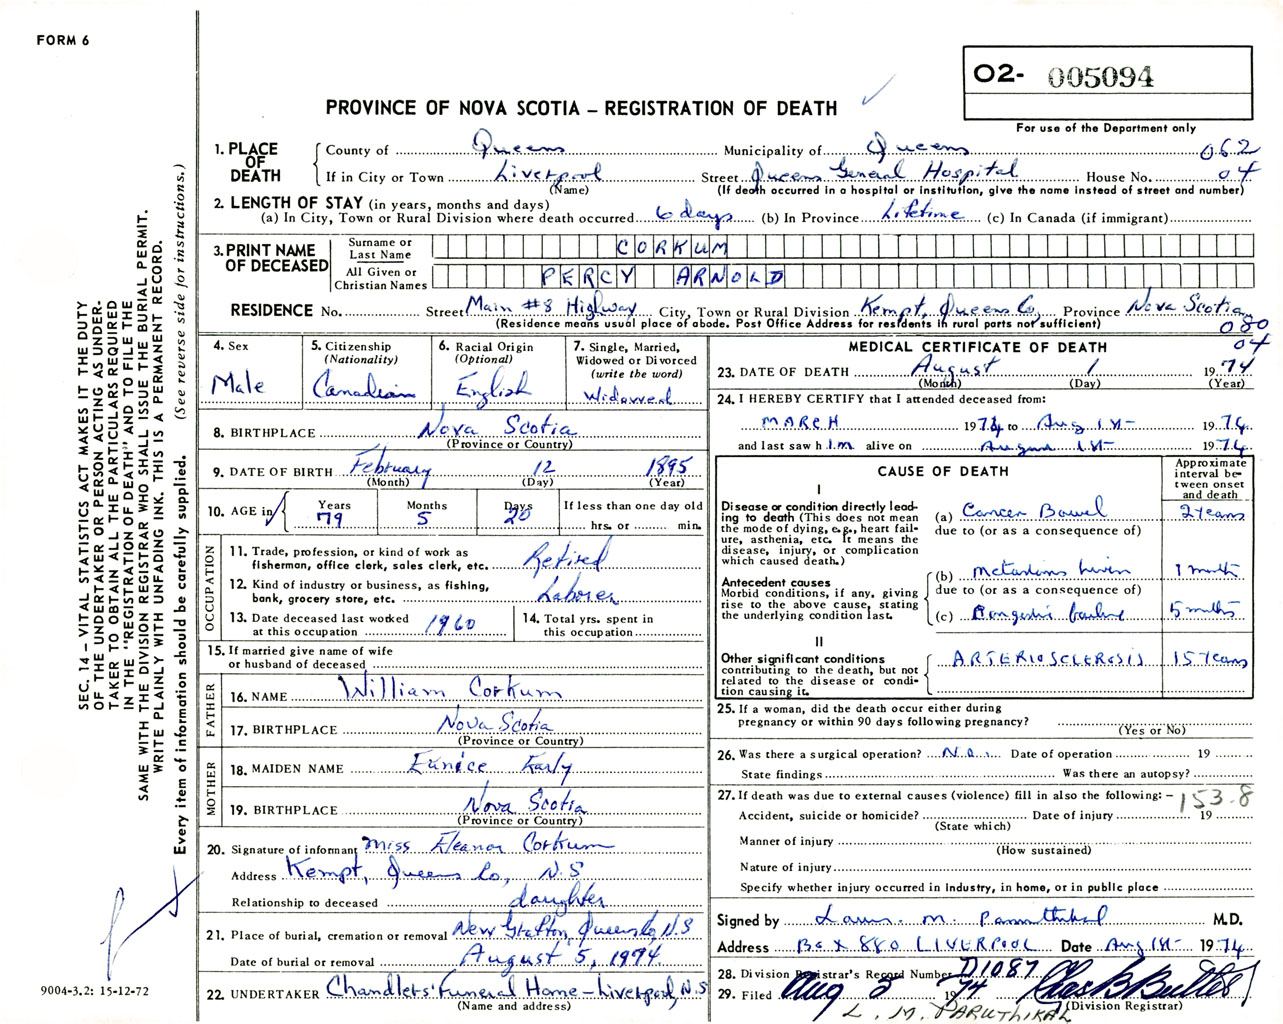 FORM 6
O2- 005094
PROVINCE OF NOVA SCOTIA – REGISTRATION OF DEATH
For use of the Department only
1. PLACE OF DEATH
County of Queens Municipality of Queens 062
If in City or Town Liverpool Street Queens General Hospital House No. 04
(Name) (If death occurred in a hospital or institution, give the name instead of street and number)
2. LENGTH OF STAY (in years, months and days)
(a) In City, Town or Rural Division where death occurred 6 days (b) In Province Lifetime (c) In Canada (if immigrant)
3. PRINT NAME OF DECEASED
Surname or Last Name CORKUM
All Given or Christian Names PERCY ARNOLD
RESIDENCE No. Street Main #8 Highway City, Town or Rural Division Kempt, Queens Co, Province Nova Scotia
(Residence means usual place of abode. Post Office Address for residents in rural parts not sufficient)
080
04
4. Sex
Male
5. Citizenship
(Nationality)
Canadian
6. Racial Origin
(Optional)
English
7. Single, Married,
Widowed or Divorced
(write the word)
Widowed
8. BIRTHPLACE Nova Scotia
(Province or Country)
9. DATE OF BIRTH February 12 1895
(Month) (Day) (Year)
10. AGE in
Years Months Days If less than one day old
79 5 20 hrs. or min.
OCCUPATION
11. Trade, profession, or kind of work as
fisherman, office clerk, sales clerk, etc. Retired
12. Kind of industry or business, as fishing,
bank, grocery store, etc. Laborer
13. Date deceased last worked
at this occupation 1960
14. Total yrs. spent in
this occupation
15. If married give name of wife
or husband of deceased
FATHER
16. NAME William Corkum
17. BIRTHPLACE Nova Scotia
(Province or Country)
MOTHER
18. MAIDEN NAME Eunice Early
19. BIRTHPLACE Nova Scotia
(Province or Country)
20. Signature of informant Miss Eleanor Corkum
Address Kempt, Queens Co, N.S
Relationship to deceased daughter
21. Place of burial, cremation or removal New Grafton, Queens Co, N.S
Date of burial or removal August 5, 1974
22. UNDERTAKER Chandlers' Funeral Home – Liverpool, N.S
(Name and address)
MEDICAL CERTIFICATE OF DEATH
23. DATE OF DEATH August 1 1974
(Month) (Day) (Year)
24. I HEREBY CERTIFY that I attended deceased from:
MARCH 1974 to Aug 1st 1974
and last saw him alive on August 1st 1974
CAUSE OF DEATH
Approximate interval between onset and death
I
Disease or condition directly leading to death (This does not mean the mode of dying, e.g., heart failure, asthenia, etc. It means the disease, injury, or complication which caused death.)
(a) Cancer Bowel 2 years
due to (or as a consequence of)
Antecedent causes
Morbid conditions, if any, giving rise to the above cause, stating the underlying condition last.
(b) 1 month
due to (or as a consequence of)
(c) 5 months
II
Other significant conditions
contributing to the death, but not related to the disease or condition causing it.
ARTERIOSCLEROSIS 15 years
25. If a woman, did the death occur either during
pregnancy or within 90 days following pregnancy?
(Yes or No)
26. Was there a surgical operation? No. Date of operation 19
State findings Was there an autopsy?
27. If death was due to external causes (violence) fill in also the following: –
153.8
Accident, suicide or homicide? Date of injury 19
(State which)
Manner of injury
(How sustained)
Nature of injury
Specify whether injury occurred in industry, in home, or in public place
Signed by M. M.D.
Address Box 880 LIVERPOOL Date Aug 1st 1974
28. Division Registrar's Record Number D1087
29. Filed Aug 5 1974 Chas B Butler
(Division Registrar)
L. M. PARUTHIKAL
SEC. 14 – VITAL STATISTICS ACT MAKES IT THE DUTY
OF THE UNDERTAKER OR PERSON ACTING AS UNDERTAKER
TO OBTAIN ALL THE PARTICULARS REQUIRED
IN THE "REGISTRATION OF DEATH" AND TO FILE THE
SAME WITH THE DIVISION REGISTRAR WHO SHALL ISSUE THE BURIAL PERMIT.
WRITE PLAINLY WITH UNFADING INK. THIS IS A PERMANENT RECORD.
Every item of information should be carefully supplied. (See reverse side for instructions.)
9004-3.2: 15-12-72